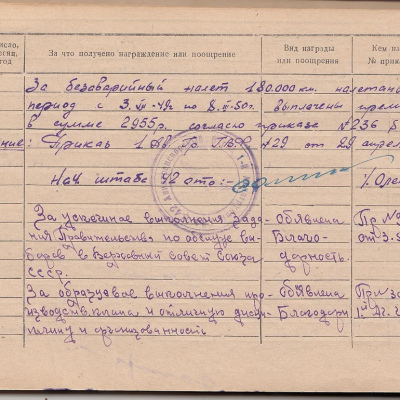 исло,
сяц,
год
За что получено награждение или поощрение
Вид награды
или поощрения
Кем на
№ прика
За безаварийный налет 180.000 км. налетано
период с 3.VII-49г по 8.III-50г. выплачены прем
в сумме 2955 р. согласно приказа №236
ние: Приказ 1 Гр ГВФ №29 от 29 апрел
Нач. штаба 42 ато:-
За успешное выполнения зада-
ния Правительства по обслуж. вы-
боров в Верховный Совет Союза
СССР.
Обявлена
Благо-
дарность.
Пр №
от 3.
За образцовое выполнения про-
изводств. плана и отличную дисци-
плину и организованность
Обявлена
Благодарн